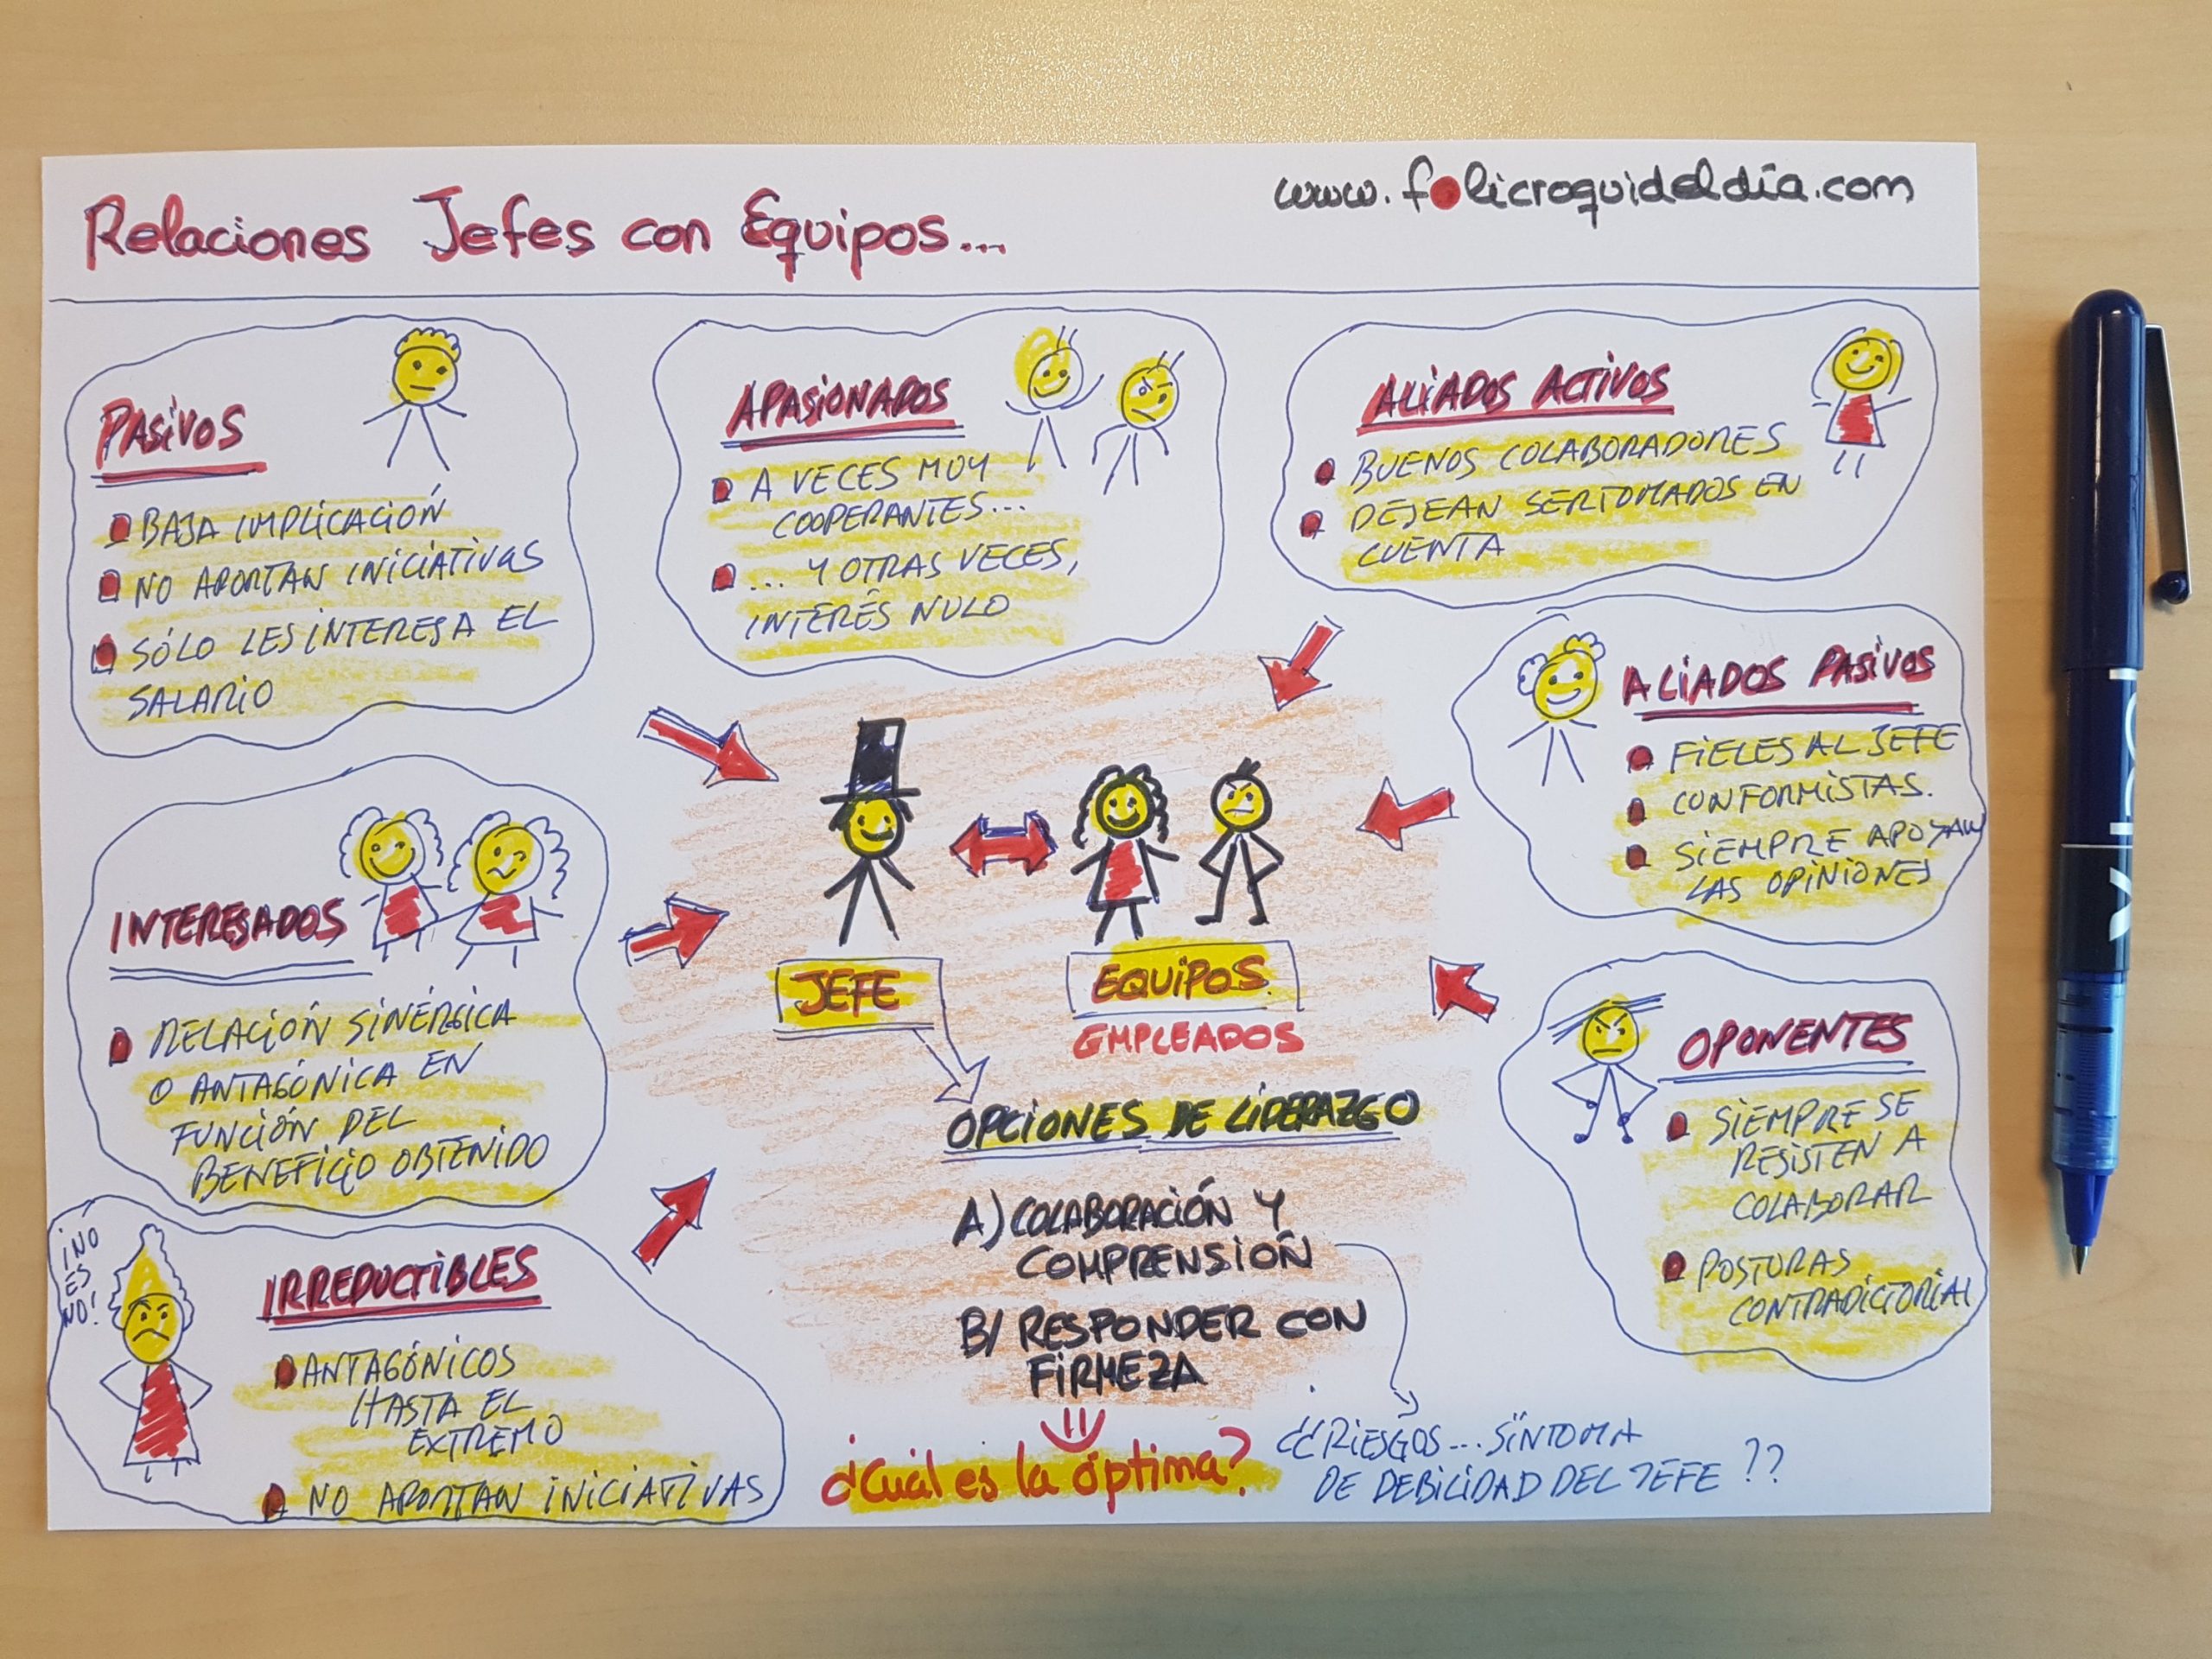 Relaciones Jefes con Equipos...
www.folicroquideldía.com
PASIVOS
BAJA IMPLICACIÓN
NO APORTAN INICIATIVAS
SÓLO LES INTERESA EL
SALARIO
APASIONADOS
A VECES MUY
COOPERANTES...
... Y OTRAS VECES,
INTERÉS NULO
ALIADOS ACTIVOS
BUENOS COLABORADORES
DESEAN SER TOMADOS EN
CUENTA
ALIADOS PASIVOS
FIELES AL JEFE
CONFORMISTAS.
SIEMPRE APOYAN
LAS OPINIONES
INTERESADOS
RELACIÓN SINÉRGICA
O ANTAGÓNICA EN
FUNCIÓN DEL
BENEFICIO OBTENIDO
JEFE
EQUIPOS
EMPLEADOS
OPONENTES
SIEMPRE SE
RESISTEN A
COLABORAR
POSTURAS
CONTRADICTORIAS
¡NO
ES
NO!
IRREDUCTIBLES
ANTAGÓNICOS
HASTA EL
EXTREMO
NO APORTAN INICIATIVAS
OPCIONES DE LIDERAZGO
A) COLABORACIÓN Y
COMPRENSIÓN
B/ RESPONDER CON
FIRMEZA
¿Cuál es la óptima?
¿¿RIESGOS... SÍNTOMA
DE DEBILIDAD DEL JEFE??